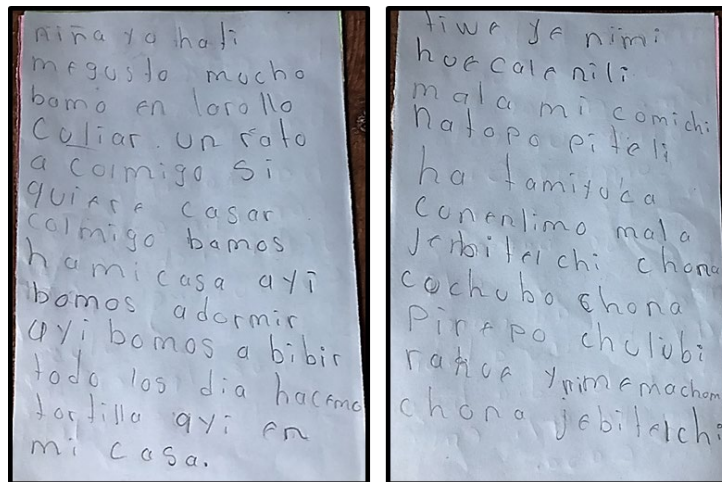 niña ya hati
megusto mucho
bamo en lorollo
Culiar. un rato
a colmigo si
quiere casar
colmigo bamos
hami casa ayi
bomos adormir
ayi bomos a bibir
todo los dia hacemo
tortilla ayi en
mi casa.
tiwe ye nimi
hue cale nili
mala mi comichi
natopo piteli
ha tamituka
conenlimo mala
jerbitelchi chona
cochubo chona
pirepo chulubi
rahue ynimemachom
chona jebitelchi